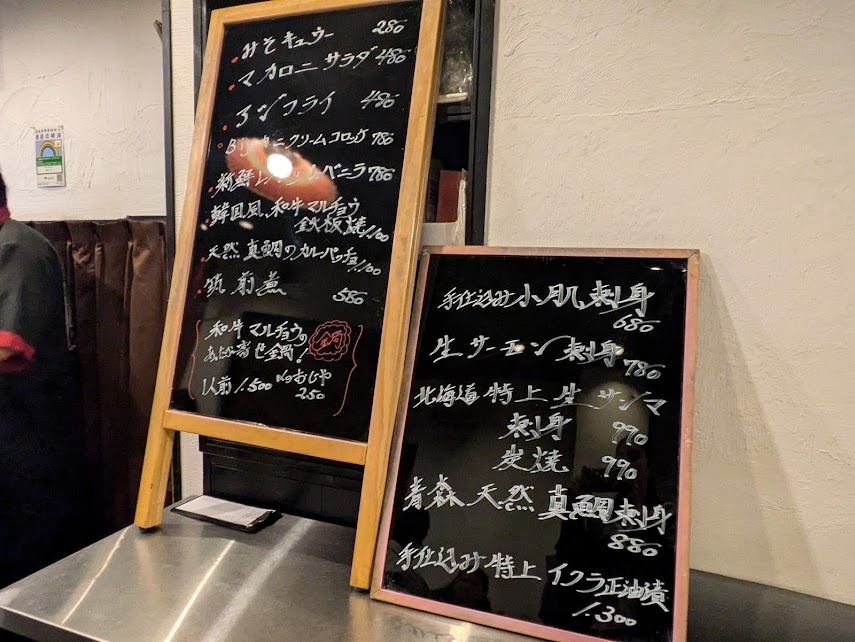 みそキュウー 280
マカロニサラダ 480
アジフライ 480
Big カニクリームコロッケ 780
新鮮レバ ベニラ 780
韓国風、和牛マルチョウ
鉄板焼 1.100
天然真鯛のカルパッチョ 1.100
筑前煮 580
和牛マルチョウの
あったか寄せ鍋!
鍋
1人前 1.500 〆のおじや
250
手仕込み小肌刺身
680
生サーモン刺身
780
北海道特上生サンマ
刺身 990
炭焼 990
青森天然真鯛刺身
880
手仕込み特上イクラ正油漬
1.300